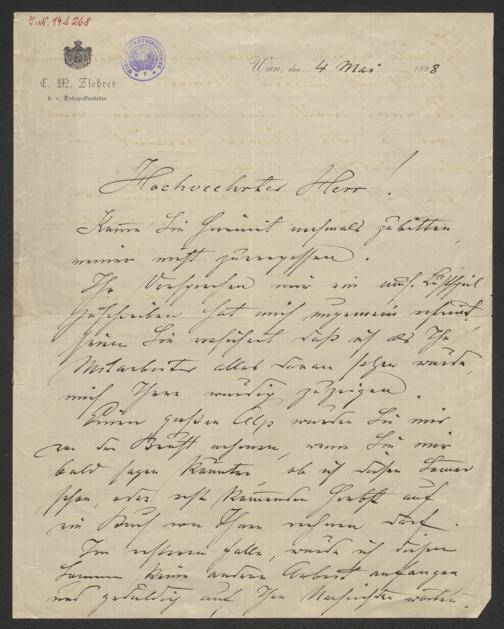 J. N. 142268
C. M. Ziehrer
k. u. k. Hofcapellmeister.
Wien, den 4 Mai 1898
Hochverehrter Herr!
Komme Sie hiemit nochmals zu bitten,
meiner nicht zu vergessen.
Ihr Versprechen mir ein Lustspiel
zuschreiben hat mich ungemein erfreut,
seien Sie versichert daß ich als Ihr
Mitarbeiter alles daran setzen würde,
mich Ihrer würdig zuzeigen.
Einen großen Alp würden Sie mir
von der Brust nehmen, wenn Sie mir
bald sagen könnten, ob ich diesen Sommer
schon, oder erst kommenden Herbst auf
ein Buch von Ihnen rechnen darf.
Im ersteren Falle, würde ich diesen
Sommer keine andere Arbeit anfangen
und geduldig auf Ihre Nachrichten warten.